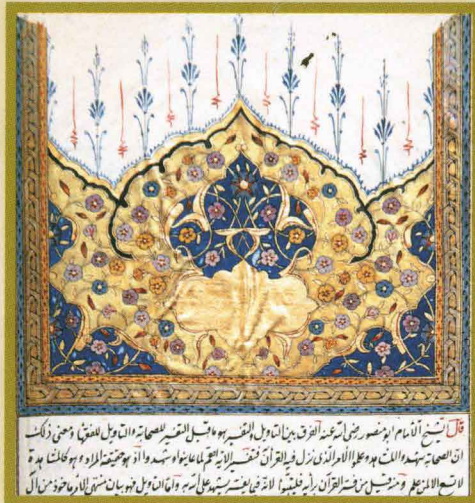 قال الشيخ الامام ابو منصور رضى الله عنه الفرق بين التاويل والتفسير هو ما قيل التفسير للصحابة والتاويل للفقهاء ومعنى ذلك
ان الصحابة شهدوا المشاهد وعلموا الامر الذى نزل فيه القرآن فتفسير الآية اهم لما عاينوا وشهدوا اذ هو حقيقة المراد وهو كالمشاهدة
لا تسع الا لمن علم ومنه قيل من فسر القرآن برأيه فليتبوأ لانه فيما يفسر يشهد على الله به واما التاويل فهو بيان منتهى الامر ماخوذ من آل